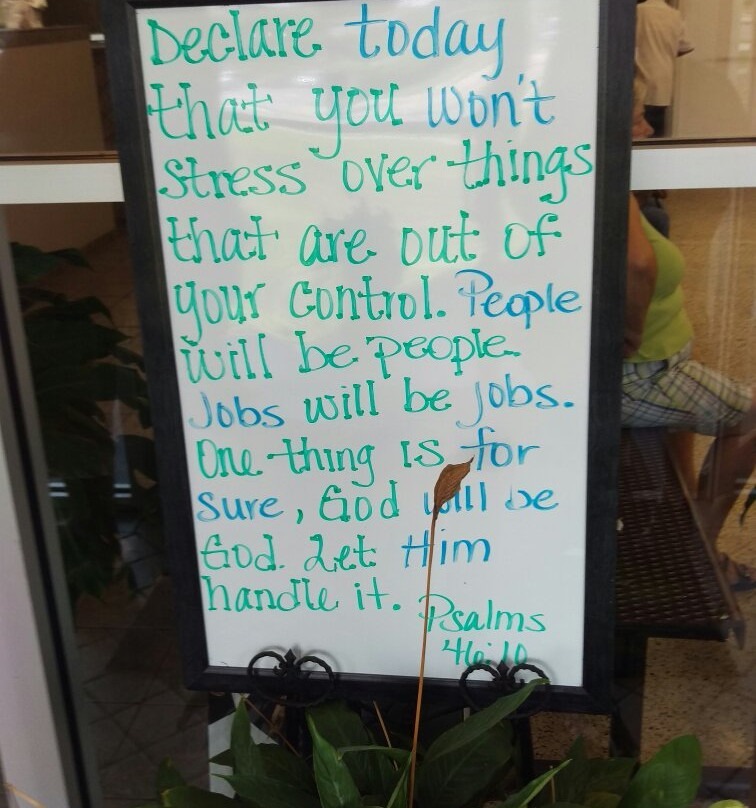 Declare today
that you won't
stress over things
that are out of
your control. People
will be people.
Jobs will be jobs.
One thing is for
sure, God will be
God. Let Him
handle it.
Psalms
46:10